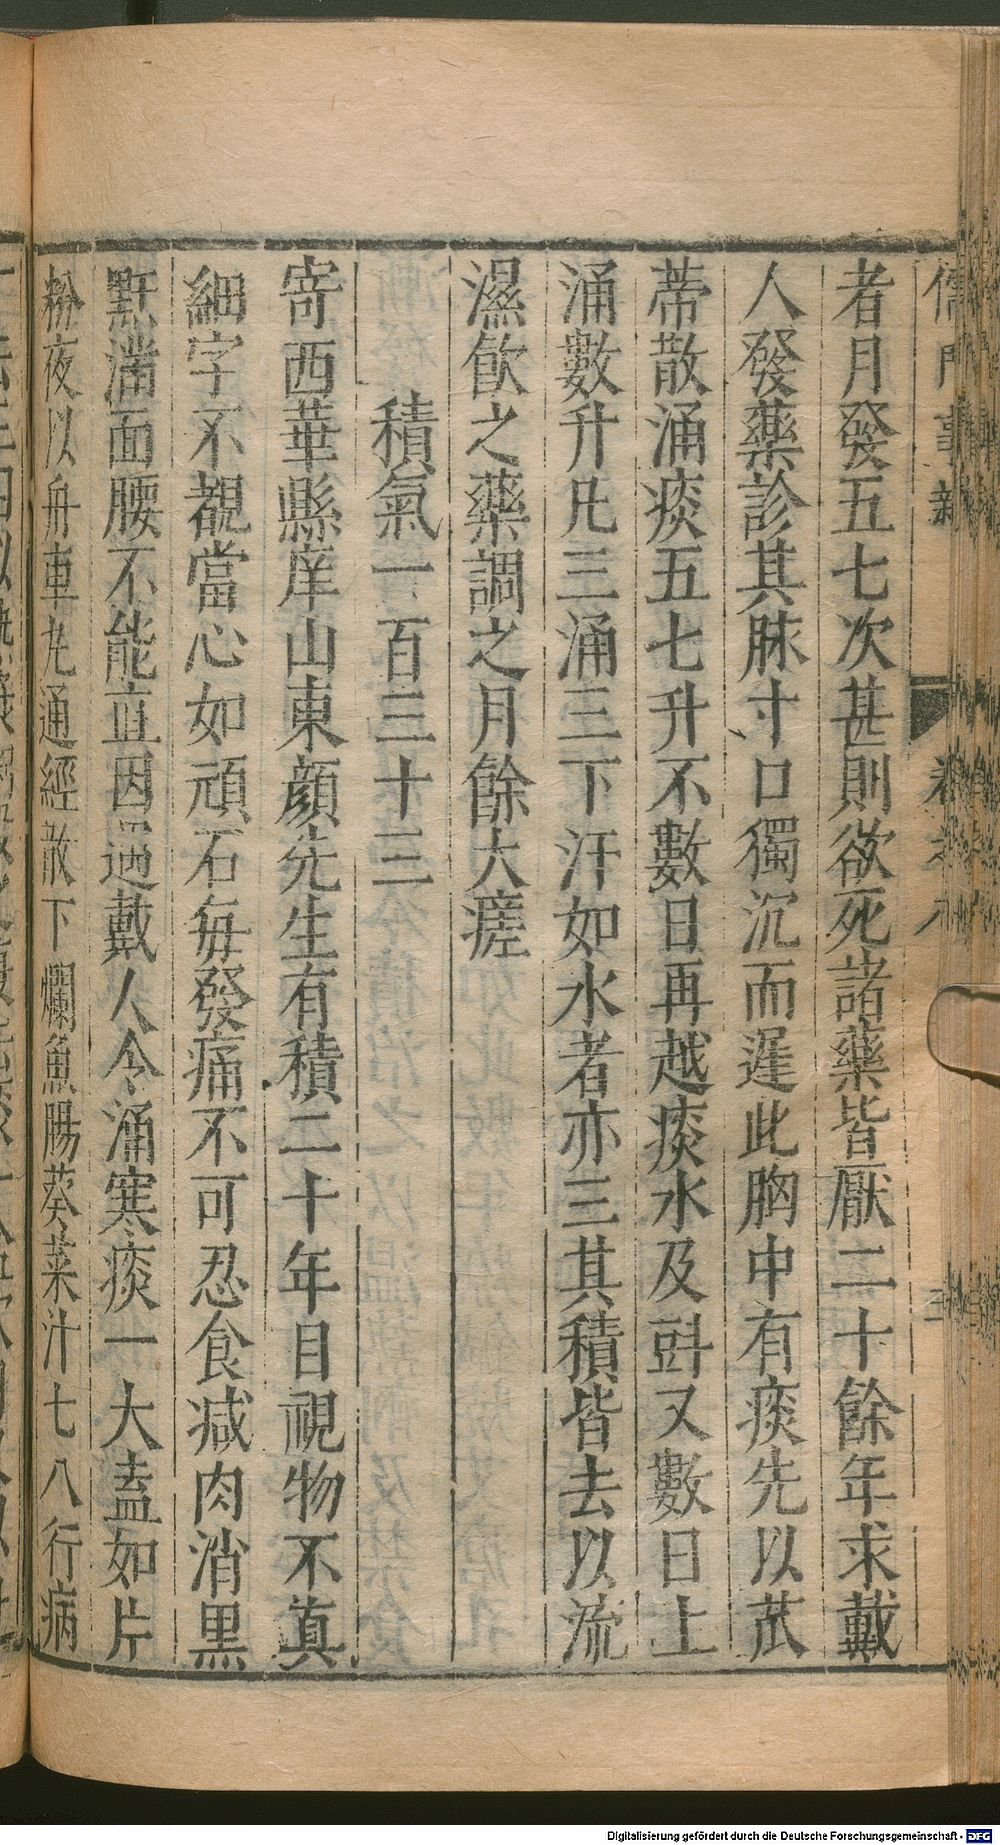 儒門事親 卷之八
者月發五七次甚則欲死諸藥皆厭二十餘年求戴
人發藥診其脉寸口獨沉而遲此胸中有痰先以苽
蒂散涌痰五七升不數日再越痰水及㪷又數日上
涌數升凡三涌三下汗如水者亦三其積皆去以流
濕飲之藥調之月餘大瘥
積氣一百三十三
寄西華縣庠山東顔先生有積二十年目視物不真
細字不覩當心如頑石每發痛不可忍食减肉消黑
䵟滿面腰不能直因遇戴人令涌寒痰一大盍如片
粉夜以舟車丸通經散下爛魚腸葵菜汁七八行病
Digitalisierung gefördert durch die Deutsche Forschungsgemeinschaft - DFG